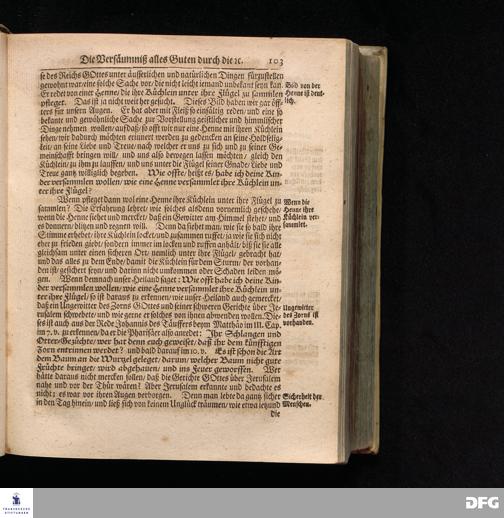 Die Versäumniß alles Guten durch die ꝛc. 103
se des Reichs GOttes unter äusserlichen und natürlichen Dingen fürzustellen
gewohnt war, eine solche Sache vor, die nicht leicht iemand unbekant seyn kan.
Er redet von einer Henne, die ihre Küchlein unter ihre Flügel zu sammlen
pfleget. Das ist ja nicht weit her gesucht. Dieses Bild haben wir gar öff-
ters für unsern Augen. Er hat aber mit Fleiß so einfältig reden, und eine so
bekante und gewöhnliche Sache zur Vorstellung geistlicher und himmlischer
Dinge nehmen wollen, auf daß, so offt wir nur eine Henne mit ihren Küchlein
sehen, wir dadurch möchten erinnert werden zu gedencken an seine Holdselig-
keit, an seine Liebe und Treue, nach welcher er uns zu sich und zu seiner Ge-
meinschafft bringen will, und uns also bewegen lassen möchten, gleich den
Küchlein zu ihm zu lauffen, und uns unter die Flügel seiner Gnade, Liebe und
Treue gantz williglich begeben. Wie offte, heißt es, habe ich deine Kin-
der versammlen wollen, wie eine Henne versammlet ihre Küchlein un-
ter ihre Flügel?
Bild von der
Henne ist deut-
lich.
Wenn pfleget dann wol eine Henne ihre Küchlein unter ihre Flügel zu
sammlen? Die Erfahrung lehret, wie solches alsdenn vornemlich geschehe,
wenn die Henne siehet und mercket, daß ein Gewitter am Himmel stehet, und
es donnern, blitzen und regnen will. Denn da siehet man, wie sie so bald ihre
Stimme erhebet, ihre Küchlein locket, und zusammen ruffet, ja wie sie sich nicht
eher zu frieden giebt, sondern immer im locken und ruffen anhält, biß sie sie alle
gleichsam unter einen sicheren Ort, nemlich unter ihre Flügel, gebracht hat,
und das alles zu dem Ende, damit die Küchlein für dem Sturm, der vorhan-
den ist, gesichert seyn, und darinn nicht umkommen oder Schaden leiden mö-
gen. Wenn demnach unser Heiland saget: Wie offt habe ich deine Kin-
der versammlen wollen, wie eine Henne versammlet ihre Küchlein un-
ter ihre Flügel, so ist daraus zu erkennen, wie unser Heiland auch gemercket,
daß ein Ungewitter des Zorns GOttes und seiner schweren Gerichte über Je-
rusalem schwebete, und wie gerne er solches von ihnen abwenden wollen. Die-
ses ist auch aus der Rede Johannis des Täuffers beym Matthäo im III. Cap.
im 7. v. zu erkennen, da er die Pharisäer also anredet: Ihr Schlangen und
Otter-Gezüchte, wer hat denn euch geweiset, daß ihr dem künfftigen
Zorn entrinnen werdet? und bald darauf im 10. v. Es ist schon die Axt
dem Baum an die Wurtzel geleget, darum, welcher Baum nicht gute
Früchte bringet, wird abgehauen, und ins Feuer geworffen. Wer
hätte daraus nicht mercken sollen, daß die Gerichte GOttes über Jerusalem
nahe und vor der Thür wären? Aber Jerusalem erkannte und bedachte es
nicht; es war vor ihren Augen verborgen. Denn man lebte da gantz sicher
in den Tag hinein, und ließ sich von keinem Unglück träumen, wie etwa ietzund
die
Wenn die
Henne ihre
Küchlein ver-
sammlet.
Ungewitter
des Zorns ist
vorhanden.
Sicherheit der
Menschen.
FRANCKESCHE
STIFTUNGEN
DFG